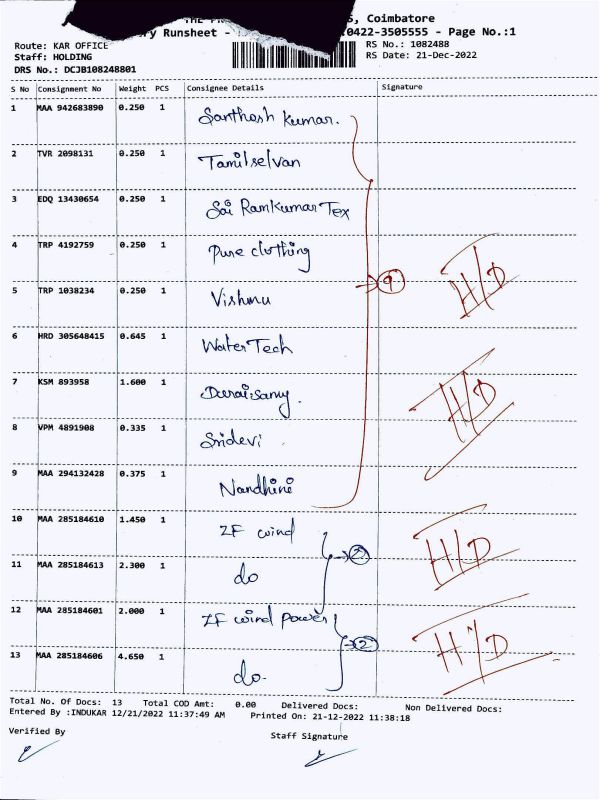 S, Coimbatore
ry Runsheet - 0422-3505555 - Page No.:1
Route: KAR OFFICE RS No.: 1082488
Staff: HOLDING RS Date: 21-Dec-2022
DRS No.: DCJB108248801
S No Consignment No Weight PCS Consignee Details Signature
1 MAA 942683890 0.250 1 Santhosh Kumar.
2 TVR 2098131 0.250 1 Tamilselvan
3 EDQ 13430654 0.250 1 Sai Ramkumar Tex
4 TRP 4192759 0.250 1 Pure clothing H/D
5 TRP 1038234 0.250 1 Vishnu 9
6 HRD 305648415 0.645 1 Water Tech
7 KSM 893958 1.600 1 Duraisamy. H/D
8 VPM 4891908 0.335 1 Sridevi
9 MAA 294132428 0.375 1 Nandhini
10 MAA 285184610 1.450 1 ZF wind H/D
11 MAA 285184613 2.300 1 do
12 MAA 285184601 2.000 1 ZF wind power 2 H/D
13 MAA 285184606 4.650 1 do.
Total No. Of Docs: 13 Total COD Amt: 0.00 Delivered Docs: Non Delivered Docs:
Entered By :INDUKAR 12/21/2022 11:37:49 AM Printed On: 21-12-2022 11:38:18
Verified By Staff Signature